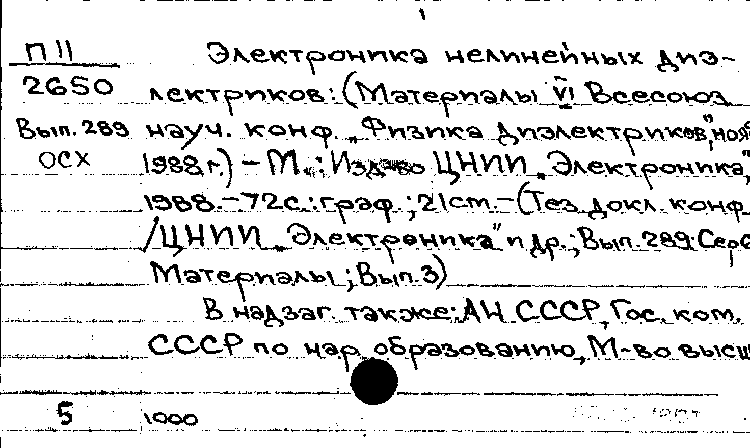 1
П 11
2650
Вып. 289
ОСХ
Электроника нелинейных диэ-
лектриков: (Материалы VI Всесоюз
науч. конф. „Физика диэлектриков", ноя
1988 г.) – М.: Изд-во ЦНИИ „Электроника",
1988. – 72 с.: граф.; 21 cm. – (Тез. докл. конф
/ЦНИИ „Электроника" и др.; Вып. 289. Сер 6
Материалы; Вып. 3)
В надзаг. также: АН СССР, Гос. ком.
СССР по нар образованию, М-во высш
5 1000